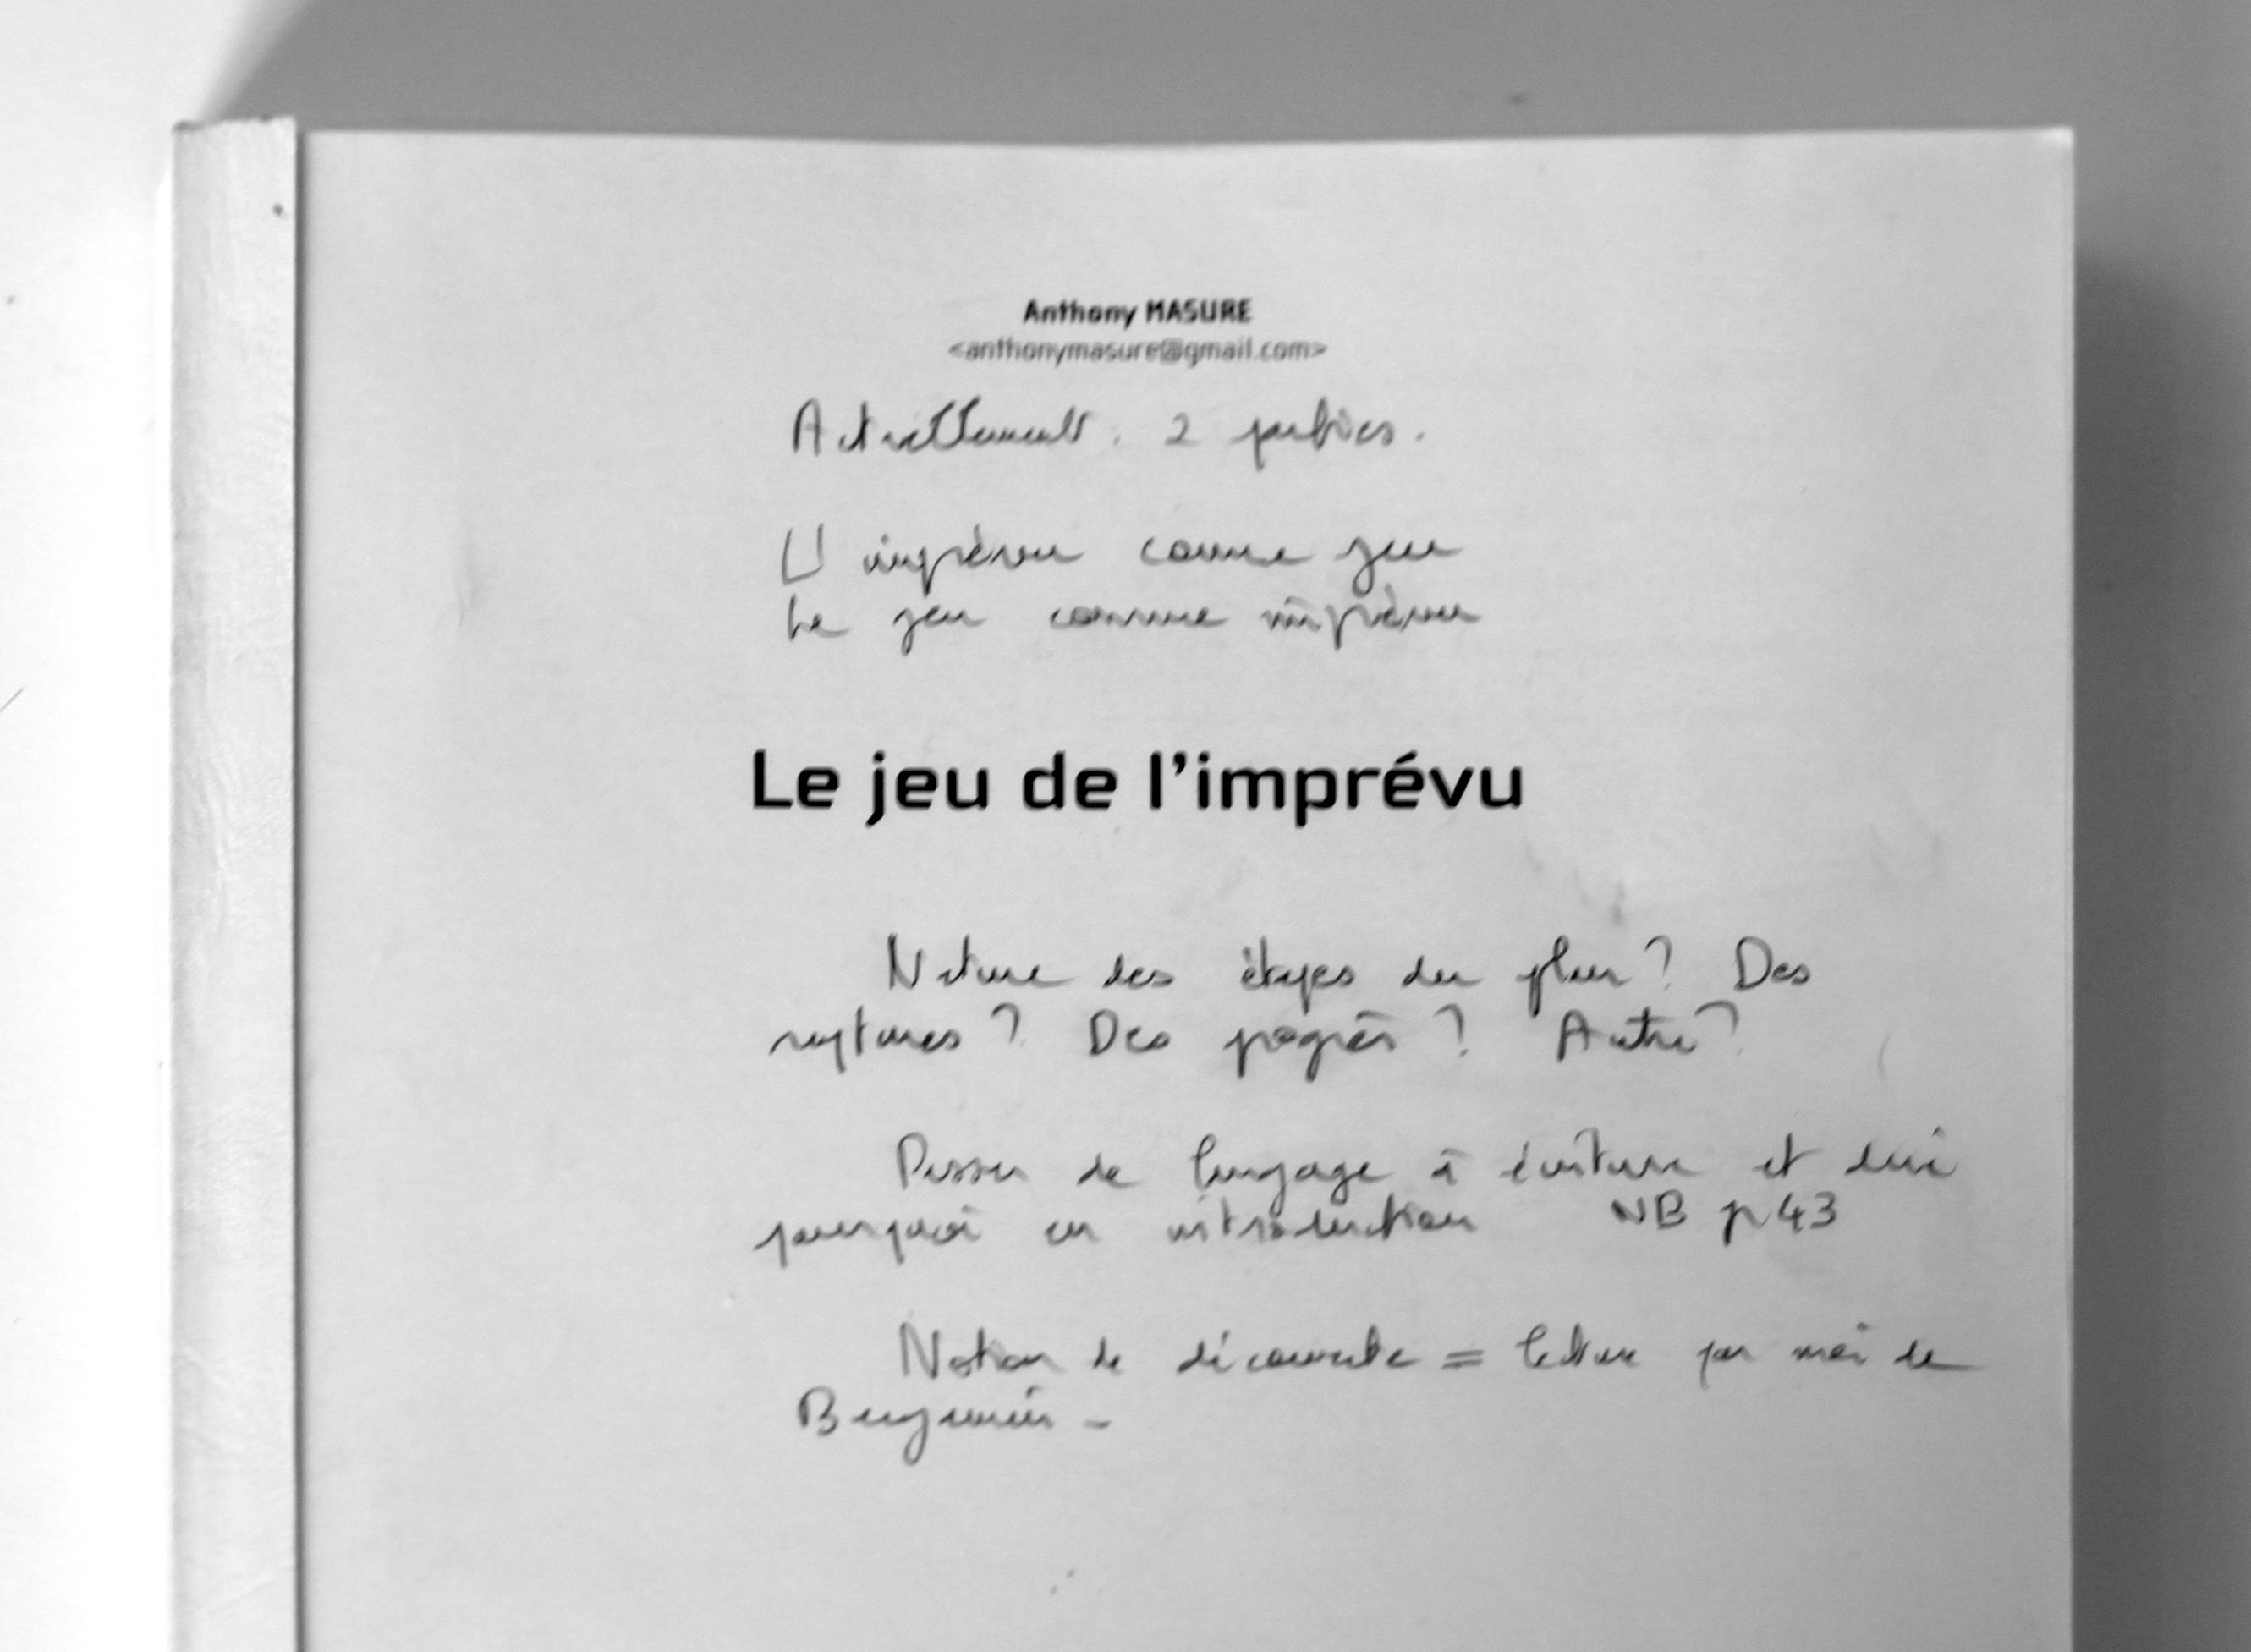 Anthony MASURE
<anthonymasure@gmail.com>
Actuellement. 2 parties.
L'imprévu comme jeu
Le jeu comme imprévu
Le jeu de l'imprévu
Nature des étapes du plan? Des
ruptures? Des progrès? Autre?
Passer de langage à écriture et dire
pourquoi en introduction NB p43
Notion de découverte = lecture par moi de
Benjamin -